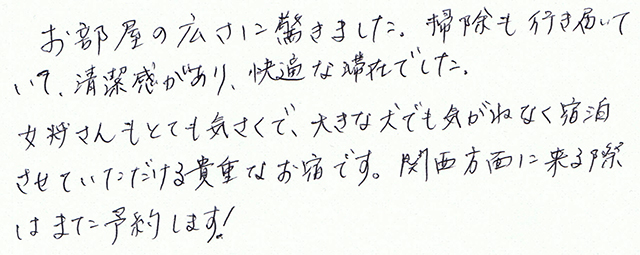 お部屋の広さに驚きました。掃除も行き届いて
いて、清潔感があり、快適な滞在でした。
女将さんもとても気さくで、大きな犬でも気がねなく宿泊
させていただける貴重なお宿です。関西方面に来る際
はまた予約します!